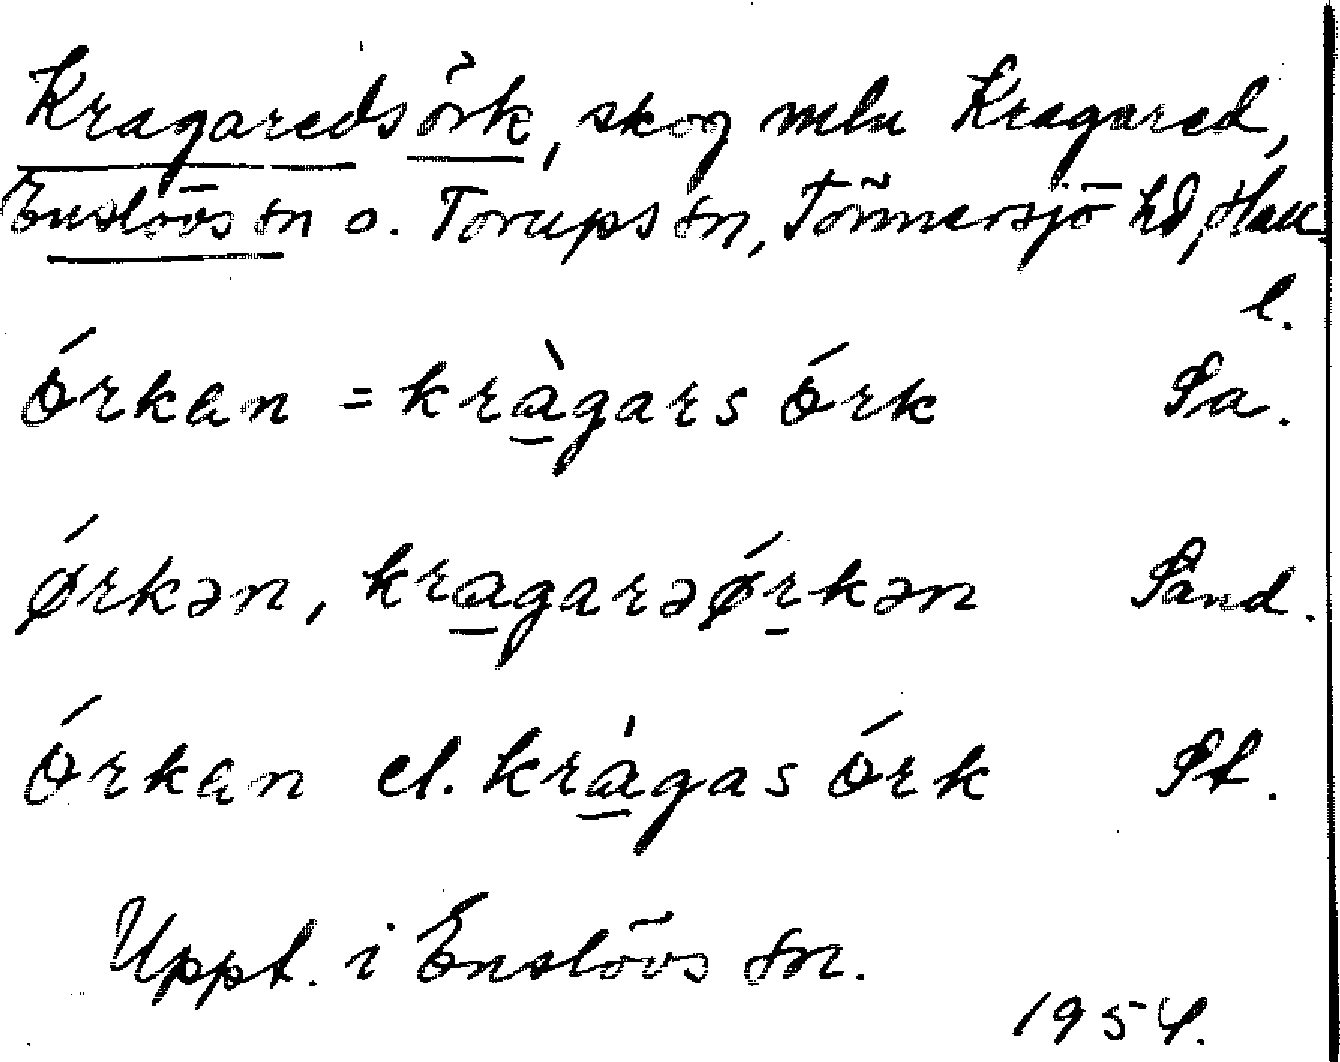 Kragaredsörk, skog mln Kragared,
Enslövs sn o. Torups sn, Tönnersjö hd, Hall.
l.
órkan = kràgars órk Sa.
ǿrkən, kragarəǿrkən Sand.
órkan el. kràgas órk St.
Uppt. i Enslövs sn.
1954.